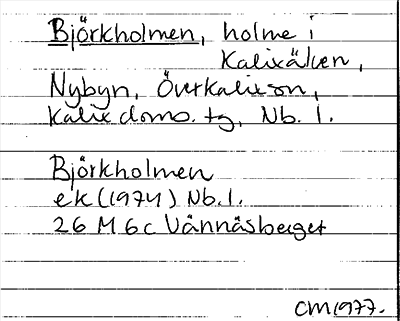 Björkholmen, holme i
Kalixälven,
Nybyn, Överkalix sn,
Kalix doms. tg, Nb. l.
Björkholmen
ek (1974) Nb. l.
26 M 6 c Vännäsberget
CM 1977.